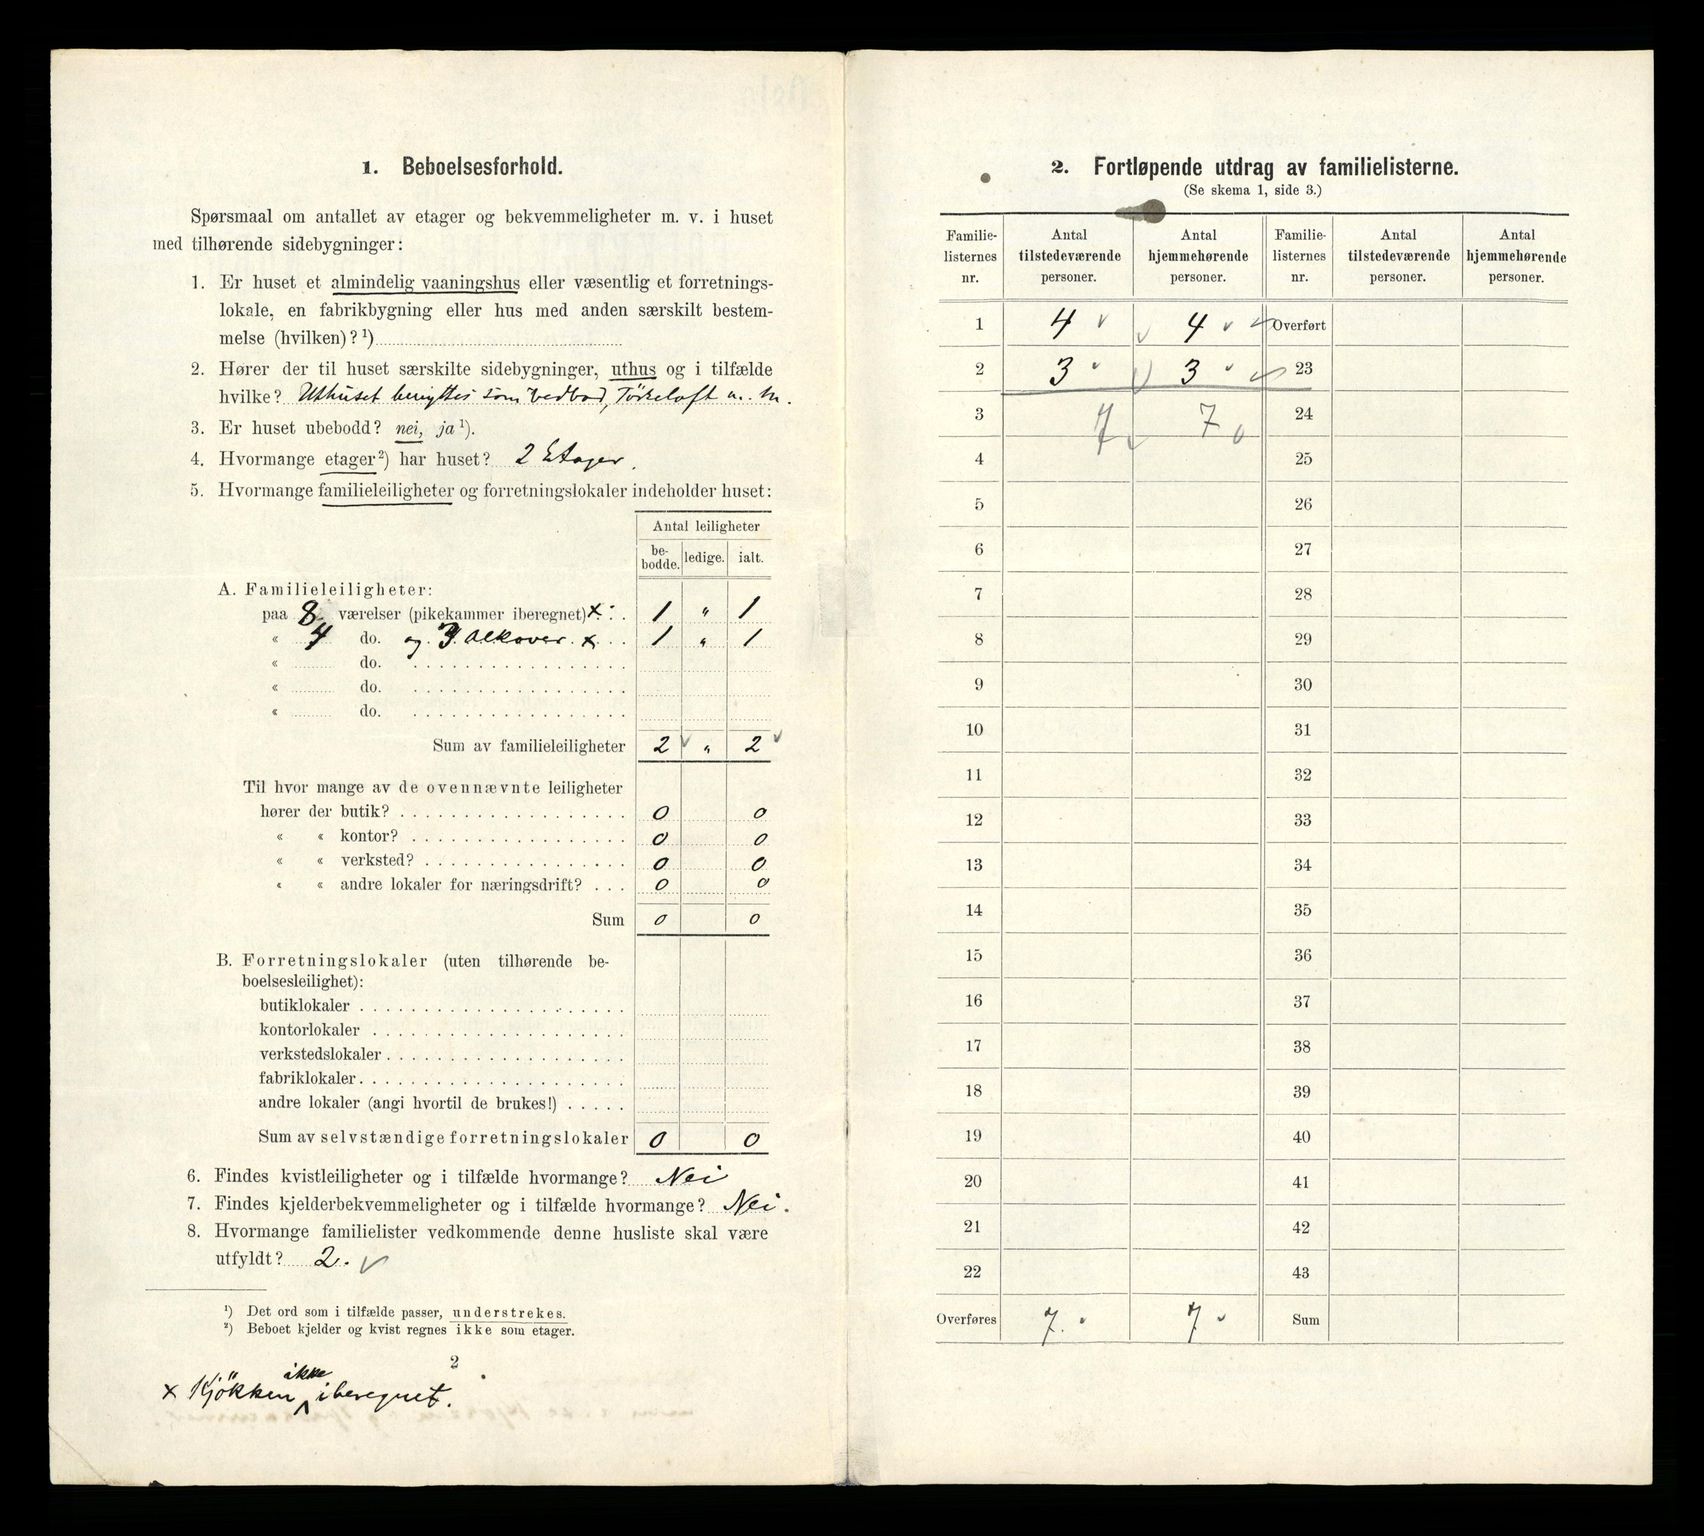 1. Beboelsesforhold.
Spørsmaal om antallet av etager og bekvemmeligheter m. v. i huset
med tilhørende sidebygninger:
1. Er huset et almindelig vaaningshus eller væsentlig et forretnings-
lokale, en fabrikbygning eller hus med anden særskilt bestem-
melse (hvilken)? ¹)
2. Hører der til huset særskilte sidebygninger, uthus og i tilfælde
hvilke? Uthuset benyttes som Vedbod, Törkeloft m. m.
3. Er huset ubebodd? nei, ja ¹).
4. Hvormange etager ²) har huset? 2 Etager.
5. Hvormange familieleiligheter og forretningslokaler indeholder huset:
Antal leiligheter
be-
bodde. ledige. ialt.
A. Familieleiligheter:
paa 8 værelser (pikekammer iberegnet) x . 1 " 1
« 4 do. og 3 Alkover x 1 " 1
« do.
« do.
« do.
Sum av familieleiligheter 2 " 2
Til hvor mange av de ovennævnte leiligheter
hører der butik? 0 0
« « kontor? 0 0
« « verksted? 0 0
« « andre lokaler for næringsdrift? 0 0
Sum 0 0
B. Forretningslokaler (uten tilhørende be-
boelsesleilighet):
butiklokaler
kontorlokaler
verkstedslokaler
fabriklokaler
andre lokaler (angi hvortil de brukes!)
Sum av selvstændige forretningslokaler 0 0
6. Findes kvistleiligheter og i tilfælde hvormange? Nei
7. Findes kjelderbekvemmeligheter og i tilfælde hvormange? Nei.
8. Hvormange familielister vedkommende denne husliste skal være
utfyldt? 2.
¹) Det ord som i tilfælde passer, understrekes.
²) Beboet kjelder og kvist regnes ikke som etager.
2
x Kjökken ikke iberegnet.
2. Fortløpende utdrag av familielisterne.
(Se skema 1, side 3.)
Familie- Antal Antal Familie- Antal Antal
listernes tilstedeværende hjemmehørende listernes tilstedeværende hjemmehørende
nr. personer. personer. nr. personer. personer.
1 4 4 Overført
2 3 3 23
3 7 7 24
4 25
5 26
6 27
7 28
8 29
9 30
10 31
11 32
12 33
13 34
14 35
15 36
16 37
17 38
18 39
19 40
20 41
21 42
22 43
Overføres 7. 7 Sum